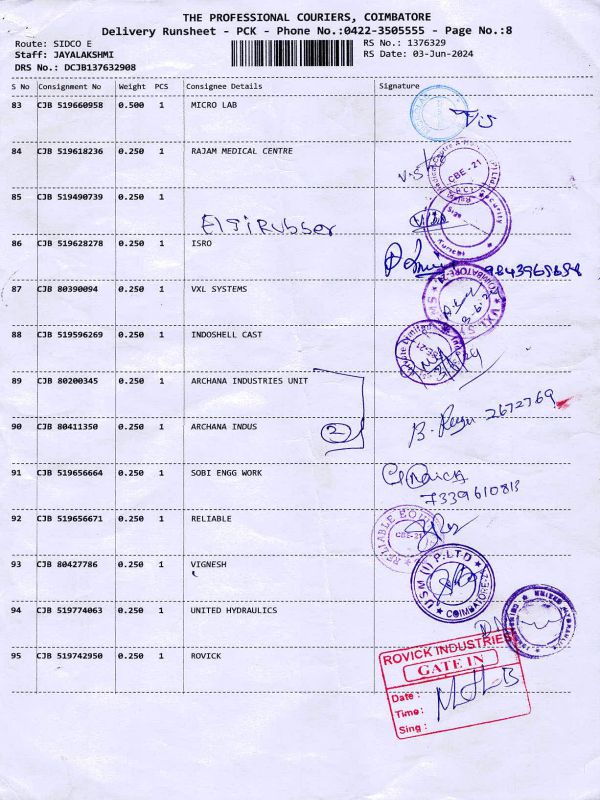 THE PROFESSIONAL COURIERS, COIMBATORE
Delivery Runsheet - PCK - Phone No.:0422-3505555 - Page No.:8
Route: SIDCO E
RS No.: 1376329
Staff: JAYALAKSHMI
RS Date: 03-Jun-2024
DRS No.: DCJB137632908
S No Consignment No Weight PCS Consignee Details Signature
83 CJB 519660958 0.500 1 MICRO LAB
84 CJB 519618236 0.250 1 RAJAM MEDICAL CENTRE
CBE-21
85 CJB 519490739 0.250 1
Elgi Rubber
Security
86 CJB 519628278 0.250 1 ISRO
87 CJB 80390094 0.250 1 VXL SYSTEMS
88 CJB 519596269 0.250 1 INDOSHELL CAST
CBE-21
89 CJB 80200345 0.250 1 ARCHANA INDUSTRIES UNIT
90 CJB 80411350 0.250 1 ARCHANA INDUS
2
2672769
91 CJB 519656664 0.250 1 SOBI ENGG WORK
7339610813
92 CJB 519656671 0.250 1 RELIABLE
CBE-21
93 CJB 80427786 0.250 1 VIGNESH
USM (I) P.LTD
COIMBATORE-21
94 CJB 519774063 0.250 1 UNITED HYDRAULICS
95 CJB 519742950 0.250 1 ROVICK
ROVICK INDUSTRIES
GATE IN
Date :
Time :
Sing :